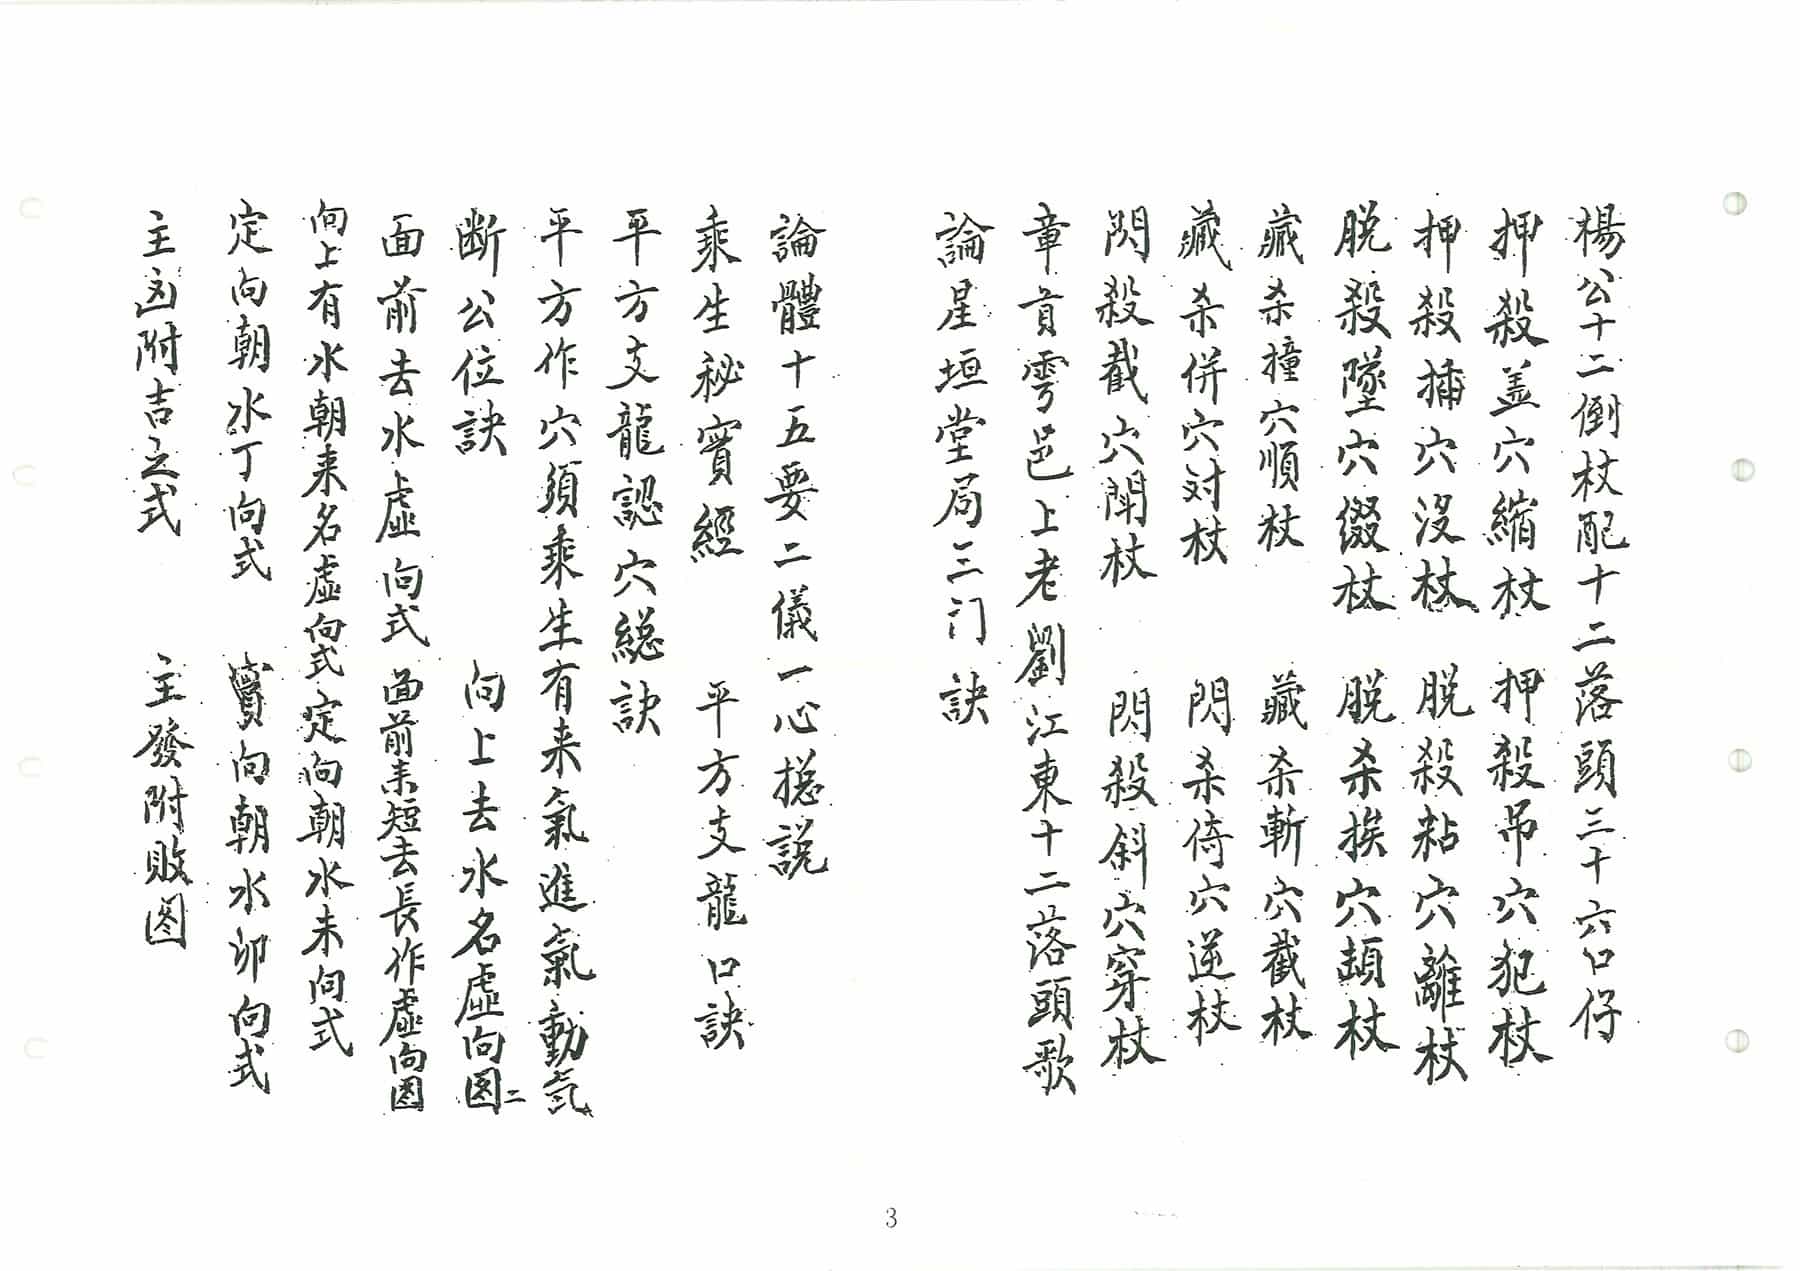 楊公十二倒杖配十二落頭三十六口仔
押殺盖穴縮杖　押殺吊穴犯杖
押殺插穴没杖　脱殺粘穴離杖
脱殺墜穴綴杖　脱杀挨穴頓杖
藏杀撞穴順杖　藏杀斬穴截杖
藏杀併穴对杖　閃杀倚穴逆杖
閃殺截穴開杖　閃殺斜穴穿杖
章貢雩邑上老劉江東十二落頭歌
論星垣堂局三门訣
論體十五要二儀一心摠説
乘生秘寳經　平方支龍口訣
平方支龍認穴総訣
平方作穴須乘生有来氣進氣動氣
断公位訣　向上去水名虚向图二
面前去水虚向式　面前来短去長作虚向图
向上有水朝来名虚向式　定向朝水未向式
定向朝水丁向式　實向朝水卯向式
主凶附吉之式　主發附敗图
3